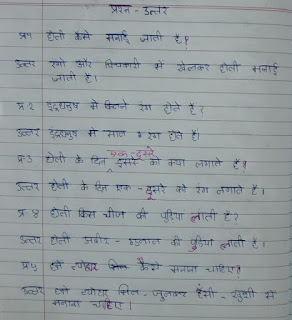 प्रश्न - उत्तर
प्र१ होली कैसे मनाई जाती है?
उत्तर रंगो और पिचकारी से खेलकर होली मनाई
जाती है।
प्र.२ इंद्रधनुष में कितने रंग होते है?
उत्तर इंद्रधनुष में सात रंग होते है।
एक-दूसरे
प्र.3 होली के दिन दूसरे को क्या लगाते है?
उत्तर होली के दिन एक - दूसरे को रंग लगाते है।
प्र ४ होली किस चीज की पुड़िया लाती है?
उत्तर होली अबीर - गुलाल की पुड़िया लाती है।
प्र५ हमे त्योहार कैसे मनाना चाहिए?
उत्तर हमे त्योहार मिल - जुलकर हँसी - खुशी से
मनाना चाहिए।